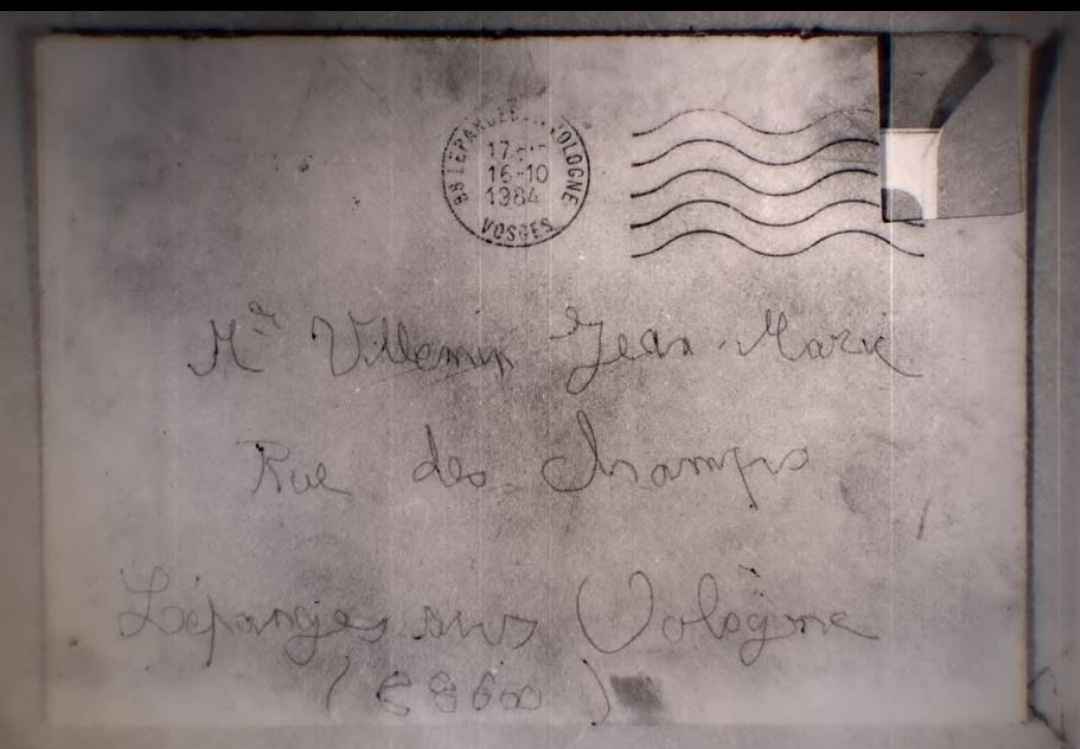 88 LEPANGES VOLOGNE
17
16-10
1984
VOSGES
Mr Villemin Jean-Marie
Rue des Champs
Lépanges sur Vologne
(88600)